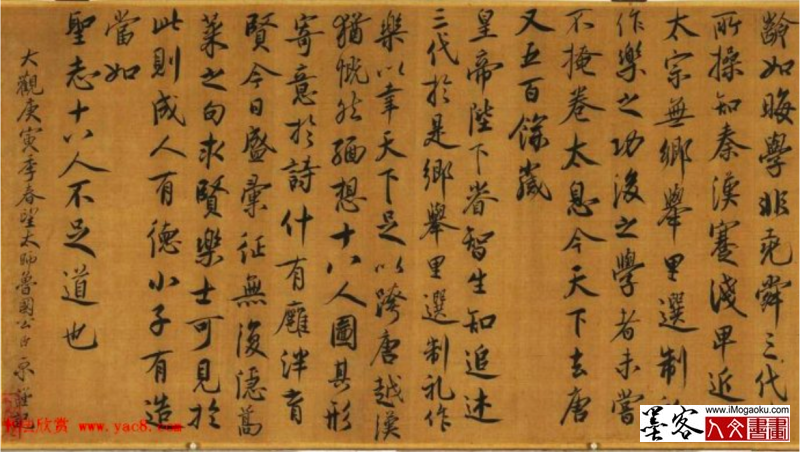 齡如晦學非堯舜三代
所操知秦漢蹇淺卑近
太宗無鄉舉里選制礼
作樂之功後之學者未嘗
不掩卷太息今天下去唐
又五百餘歲
皇帝陛下睿智生知追述
三代於是鄉舉里選制礼作
樂以幸天下足以跨唐越漢
猶慨然緬想十八人圖其形
寄意於詩什有廱泮育
賢今日盛彙征無復隱蒿
萊之句求賢樂士可見於
此則成人有德小子有造
當如
聖志十八人不足道也
大觀庚寅季春望太師魯國公臣京謹記
欣赏 www.yac8.com
墨客
www.iMogaoku.com
人文書畫